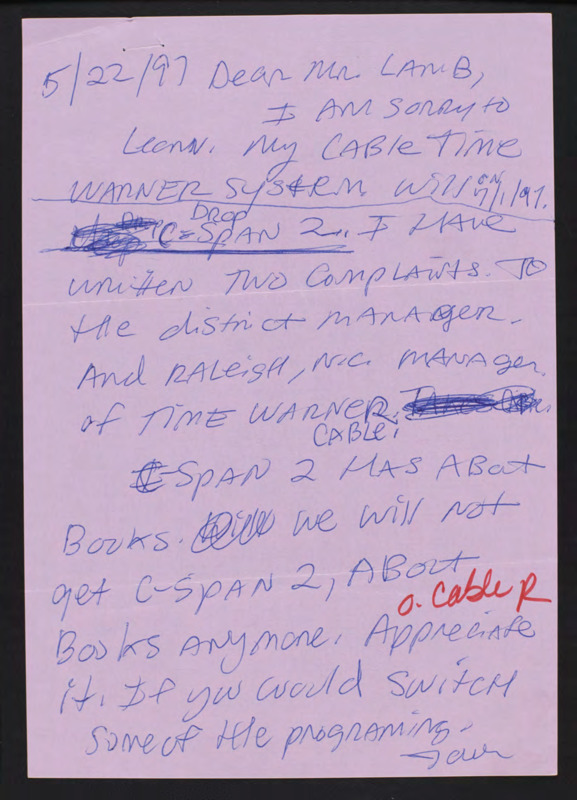 5/22/97 Dear Mr. LAMB,
I AM sorry to
Learn. My CABle TIME
WARNER SYSTEM Will ON 7/1/97.
DROP
C-SPAN 2. I HAVE
written TWO COMPLAINTS. TO
the district MANAger.
And RALeigH, N.C. MANAger.
of TIME WARNER.
CABLE.
C-SPAN 2 HAS ABout
Books. we will not
get C-SPAN 2, ABout
o. Cable R
Books anymore. Appreciate
it. If you would SWITCH
some of the programing.